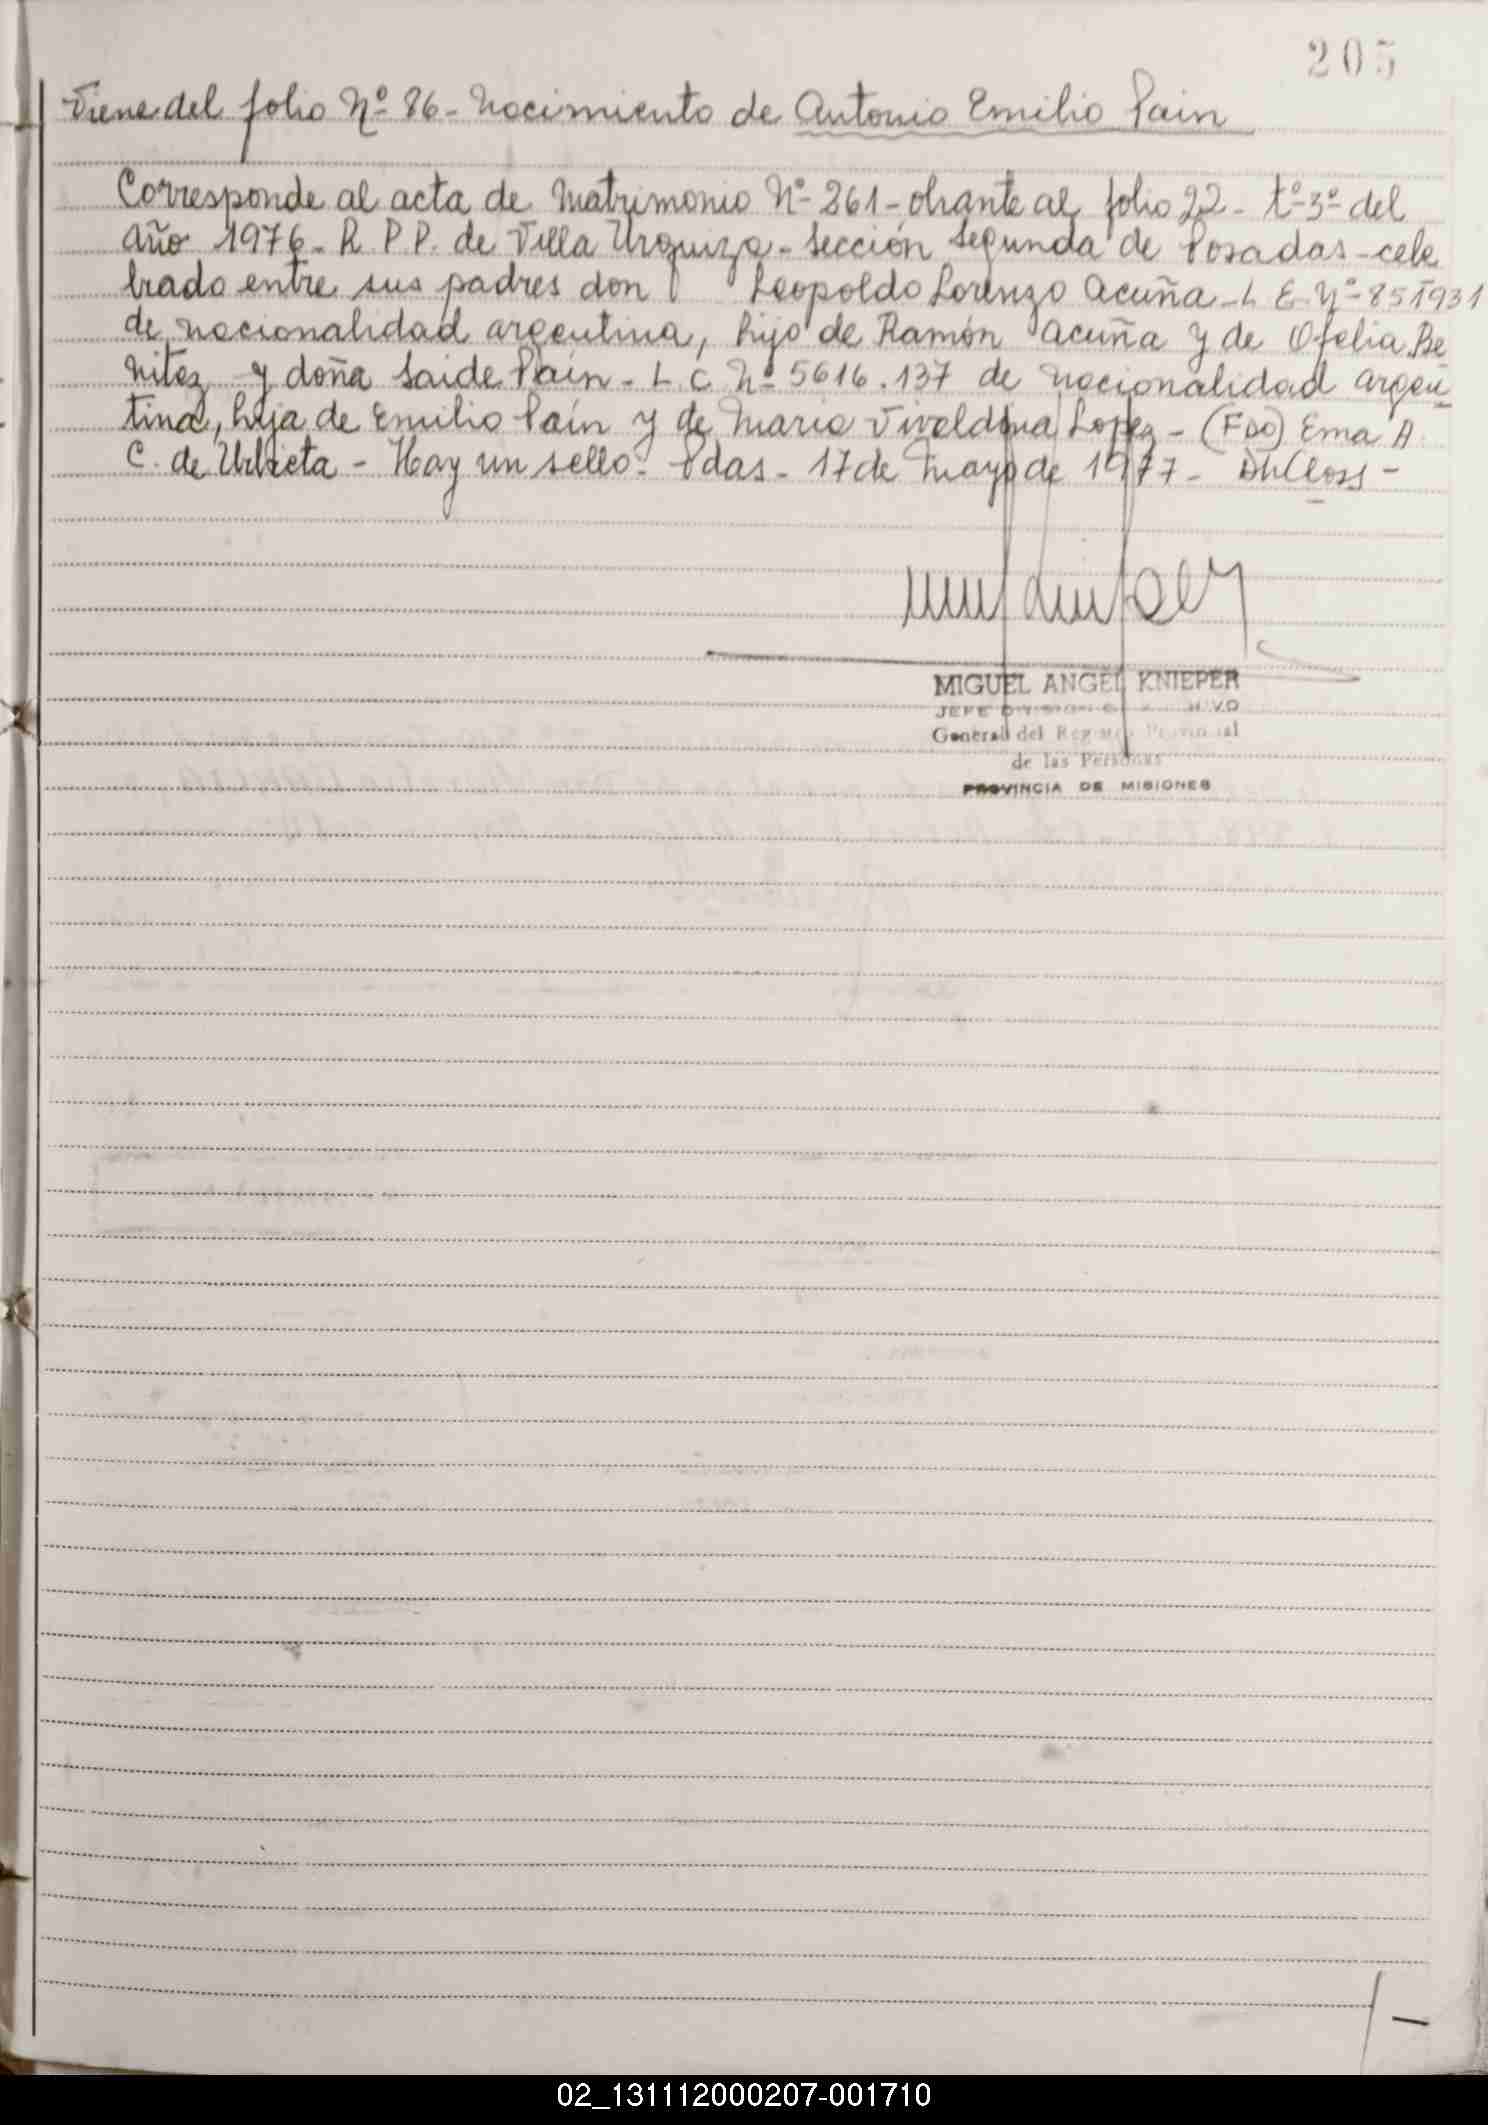 205
Viene del folio Nº 86 - Nacimiento de Antonio Emilio Pain
Corresponde al acta de Matrimonio Nº 261 - obrante al folio 22 - tº 3º del
año 1976 - R. P. P. de Villa Urquiza - Sección Segunda de Posadas - cele
brado entre sus padres don Leopoldo Lorenzo Acuña - L E Nº 851931
de nacionalidad argentina, hijo de Ramón Acuña y de Ofelia Be
nitez y doña Saide Paín - L C Nº 5616.137 de nacionalidad argen
tina, hija de Emilio Paín y de Maria Vivaldina Lopez - (Fdo) Ema A.
C. de Urbieta - Hay un sello - Pdas - 17 de Mayo de 1977 -
MIGUEL ANGEL KNIEPER
JEFE DIVISION
General del Registro Provincial
de las Personas
PROVINCIA DE MISIONES
02_131112000207-001710